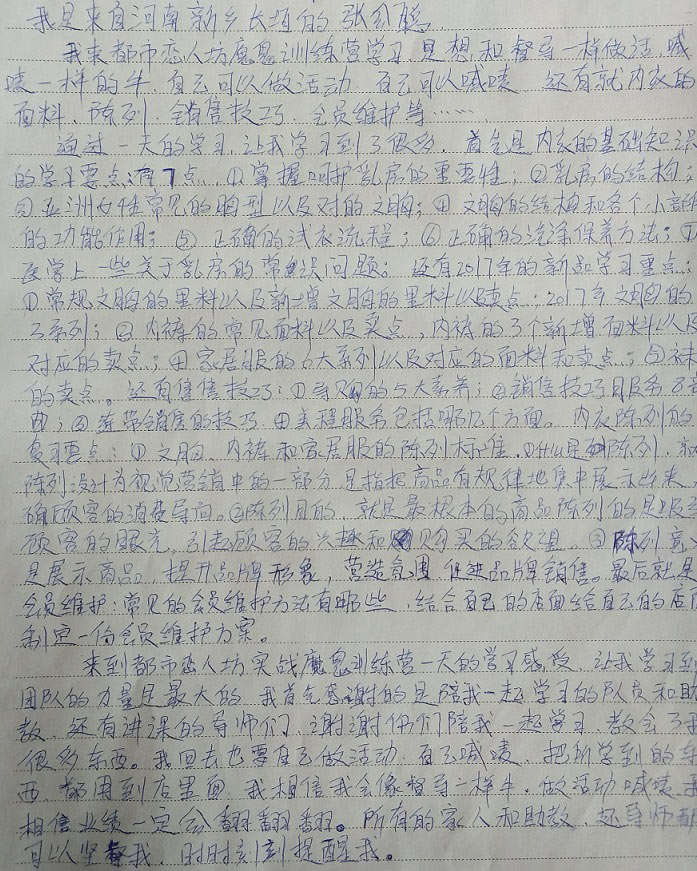 我是来自河南新乡长垣的张利聪
我来都市恋人坊魔鬼训练营学习,是想和督导一样做活,喊
唛一样的牛,自己可以做活动,自己可以喊唛,还有就内衣的
面料、陈列、销售技巧、会员维护等……
通过一天的学习,让我学习到了很多,首先是内衣的基础知识
的学习要点:有7点,①掌握呵护乳房的重要性;②乳房的结构;
③亚洲女性常见的胸型以及对的文胸;④文胸的结构和各个小部
的功能作用;⑤正确的试衣流程;⑥正确的洗涤保养方法;⑦
医学上一些关于乳房的常见误问题。还有2017年的新品学习重点:
①常规文胸的里料以及新增文胸的里料以及卖点;2017年文胸的
3系列;②内裤的常见面料以及卖点,内裤的3个新增面料以及
对应的卖点;④家居服的6大系列以及对应的面料和卖点;⑤袜
的卖点。还有售售技巧:①导购的5大素养;②销售技巧目服务8
曲;③连带销售的技巧,④美程服务包括哪几个方面。内衣陈列的
复习要点:①文胸、内裤和家居服的陈列标准,①什么是陈列,
陈列设计为视觉营销中的一部分,是指把商品有规律地集中展示出来,
确顾客的消费导向。②陈列目的,就是最根本的商品陈列的是吸
顾客的眼光,引起顾客的兴趣和购买的欲望。③陈列意
是展示商品,提升品牌形象,营造氛围,促进品牌销售。最后就是
会员维护:常见的会员维护方法有哪些,结合自己的店面给自己的店
制定一份会员维护方案。
来到都市恋人坊实战魔鬼训练营一天的学习感受,让我学习到
团队的力量是最大的,我首先感谢的是陪我一起学习的队员和助
教,还有讲课的导师们,谢谢你们陪我一起学习,教会了
很多东西。我回去也要自己做活动,自己喊唛,把所学到的东
西,都用到店里面,我相信我会像督导一样牛,做活动喊唛,
相信业绩一定会翻翻翻。所有的家人和助教,还导师都
可以坚督我,时时刻刻提醒我。